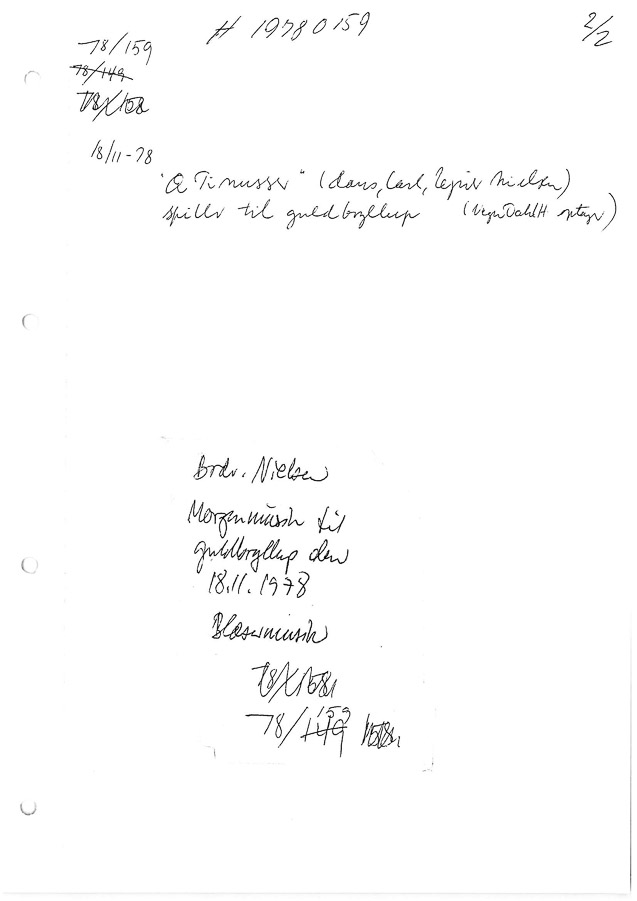 # 19780159
2/2
78/159
78/149
78/158
18/11-78
"Q Timusser" (Claus, Carl, Zejner Nielsen)
spiller til guldbryllup (Dahl H optager)
Brdr. Nielsen
Morgenmusik til
guldbryllup den
18.11.1978
Blæsermusik
78/158
159
78/149